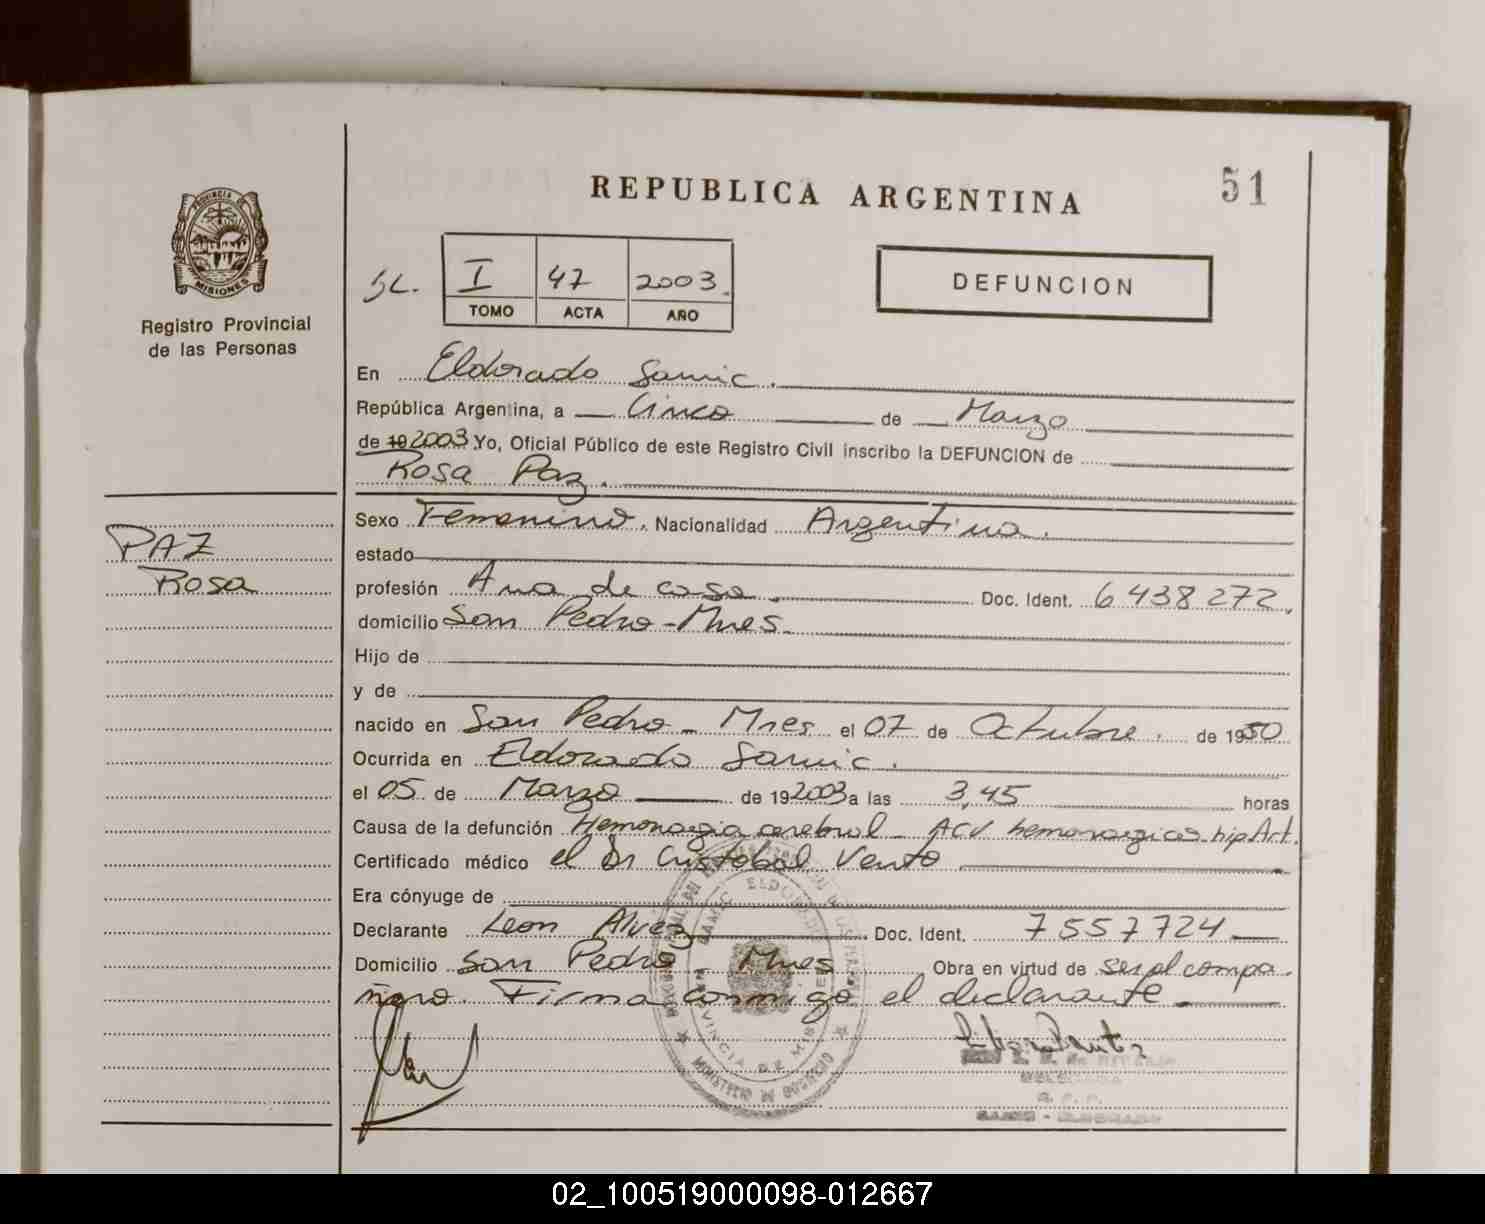 REPUBLICA ARGENTINA
51
PROVINCIA DE
MISIONES
Registro Provincial
de las Personas
I 47 2003.
TOMO ACTA AÑO
DEFUNCION
En Eldorado Samic.
República Argentina, a Cinco de Marzo
de 19 2003 Yo, Oficial Público de este Registro Civil inscribo la DEFUNCION de
Rosa Paz.
PAZ
Rosa
Sexo Femenino. Nacionalidad Argentina.
estado
profesión Ama de casa. Doc. Ident. 6438272.
domicilio San Pedro - Mnes.
Hijo de
y de
nacido en San Pedro - Mnes el 07 de Octubre. de 1950
Ocurrida en Eldorado Samic.
el 05 de Marzo de 192003 a las 3,45 horas
Causa de la defunción Hemorragia cerebral - ACV hemorragicos hip Art.
Certificado médico el Dr Cristobal Vento
Era cónyuge de
Declarante Leon Alvez Doc. Ident. 7557724
Domicilio San Pedro Mnes Obra en virtud de ser el compa
ñero. Firma conmigo el declarante.
SAMIC ELDORADO
PROVINCIA DE MISIONES
MINISTERIO DE GOBIERNO
02_100519000098-012667